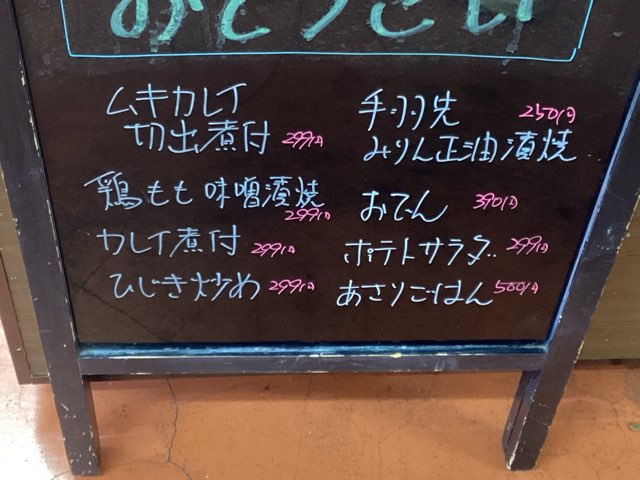 おとうさい
ムキカレイ
切出煮付 299円
鶏もも味噌漬焼
299円
カレイ煮付 299円
ひじき炒め 299円
手羽先 250円
みりん正油漬焼
おでん 390円
ポテトサラダ 299円
あさりごはん 500円